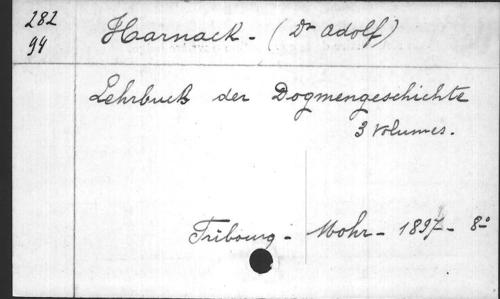 282
94
Harnack - (Dr Adolf)
Lehrbuch der Dogmengeschichte
3 Volumes.
Fribourg - Mohr - 1897 - 8°